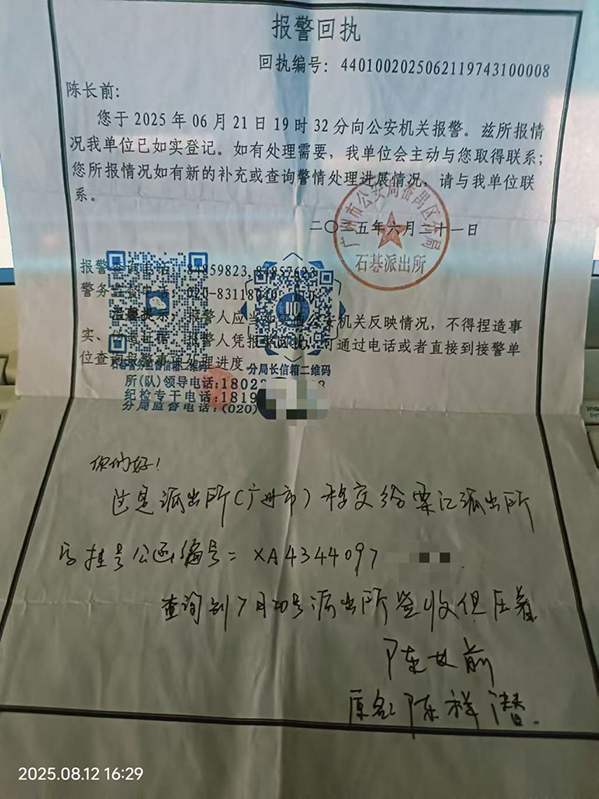 报警回执
回执编号：4401002025062119743100008
陈长前：
您于 2025 年 06 月 21 日 19 时 32 分向公安机关报警。兹所报情
况我单位已如实登记。如有处理需要，我单位会主动与您取得联系；
您所报情况如有新的补充或查询警情处理进展情况，请与我单位联
系。
二〇二五年六月二十一日
广州市公安局番禺区分局
石基派出所
报警
警务监督
020-83118
报警人应
公安机关反映情况，不得捏造事
实、
报警人凭报
可通过电话或者直接到接警单
位查询
处理进度
分局长信箱二维码
所(队)领导电话:1802
纪检专干电话:1819
分局监督电话:(020)
你们好！
这是派出所(广州市)移交给栗江派出所
的挂号公函编号= XA4344097
查询到7月20号派出所签收但压着
陈长前
原名 陈祥潜.
2025.08.12 16:29